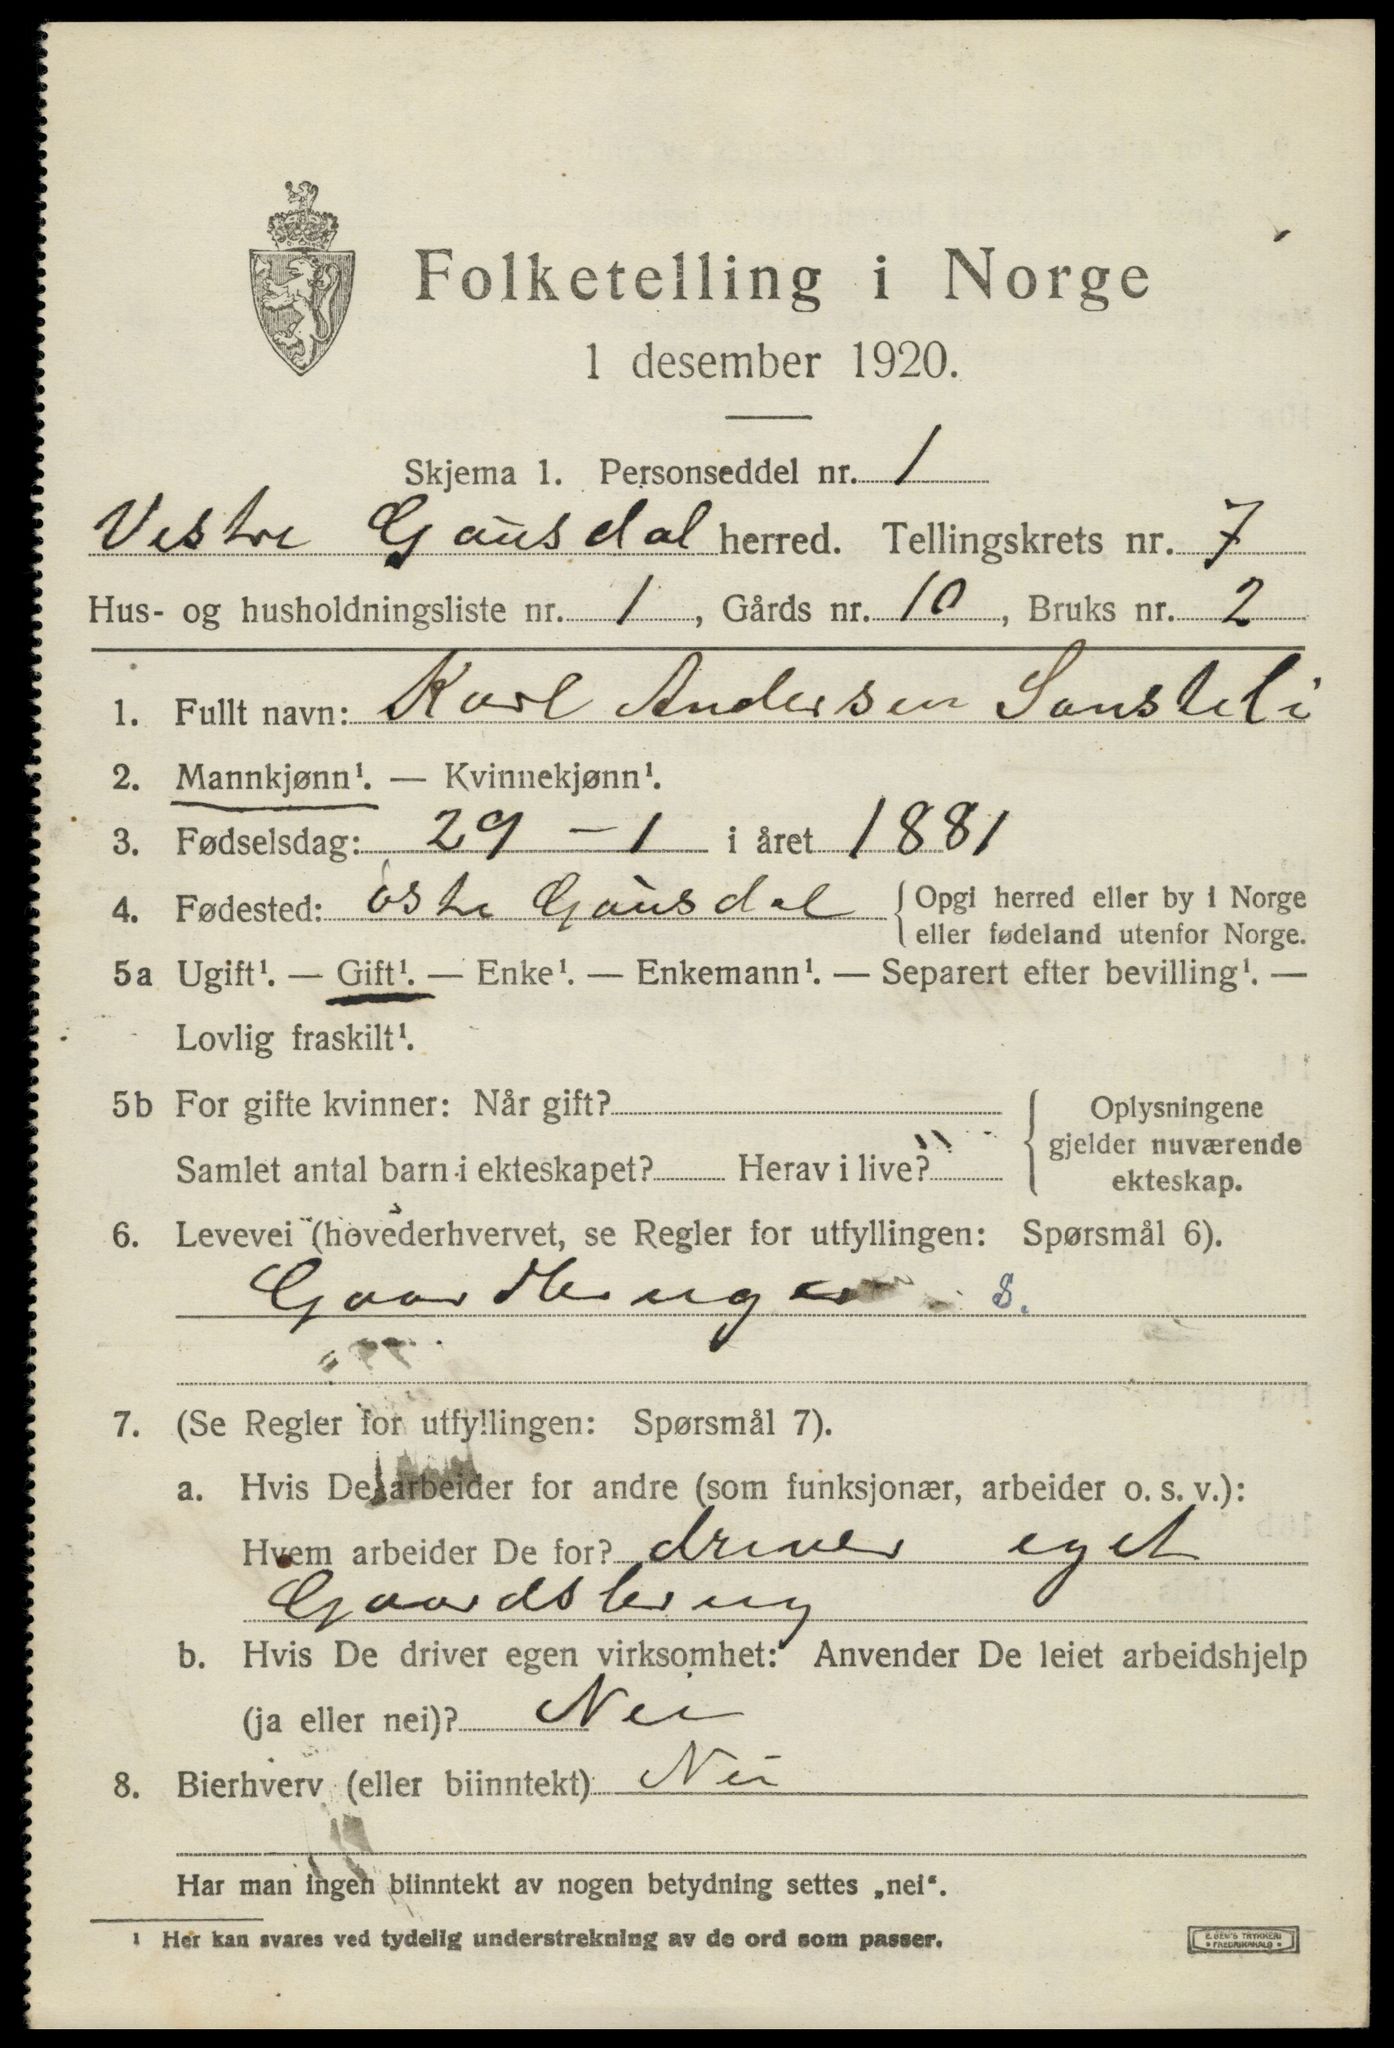 Folketelling i Norge
1 desember 1920.
Skjema 1. Personseddel nr. 1
Vestre Gausdal herred. Tellingskrets nr. 7
Hus- og husholdningsliste nr. 1, Gårds nr. 10, Bruks nr. 2
1. Fullt navn: Karl Andersen
2. Mannkjønn¹. — Kvinnekjønn¹.
3. Fødselsdag: 29 - 1 i året 1881
4. Fødested: østre Gausdal {Opgi herred eller by i Norge
eller fødeland utenfor Norge.
5a Ugift¹. — Gift¹. — Enke¹. — Enkemann¹. — Separert efter bevilling¹. —
Lovlig fraskilt¹.
5b For gifte kvinner: Når gift?
Samlet antal barn i ekteskapet? Herav i live?
Oplysningene
gjelder nuværende
ekteskap.
6. Levevei (hovederhvervet, se Regler for utfyllingen: Spørsmål 6).
Gaardbruger S.
7. (Se Regler for utfyllingen: Spørsmål 7).
a. Hvis De arbeider for andre (som funksjonær, arbeider o. s. v.):
Hvem arbeider De for? driver eget
Gaardsbrug
b. Hvis De driver egen virksomhet: Anvender De leiet arbeidshjelp
(ja eller nei)? Nei
8. Bierhverv (eller biinntekt) Nei
Har man ingen biinntekt av nogen betydning settes „nei“.
¹ Her kan svares ved tydelig understrekning av de ord som passer.
E. SEM'S TRYKKERI
• FREDRIKSHALD •